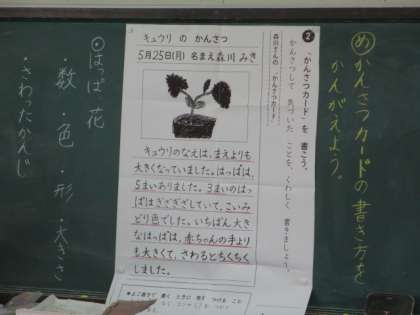 めかんさつカードの書き方を
かんがえよう。
2 「かんさつカード」を 書こう。
かんさつして 気づいた ことを、くわしく 書きましょう。
森川さんの 「かんさつカード」
キュウリ の かんさつ
5月25日(月) 名まえ 森川 みき
キュウリのなえは、まえよりも
大きくなっていました。はっぱは、
5まいありました。3まいのはっ
ぱはぎざぎざしていて、こいみ
どり色でした。いちばん大き
なはっぱは、赤ちゃんの手より
も大きくて、さわるとちくちく
しました。
・はっぱ 花
・数・色・形・大きさ
・さわったかんじ